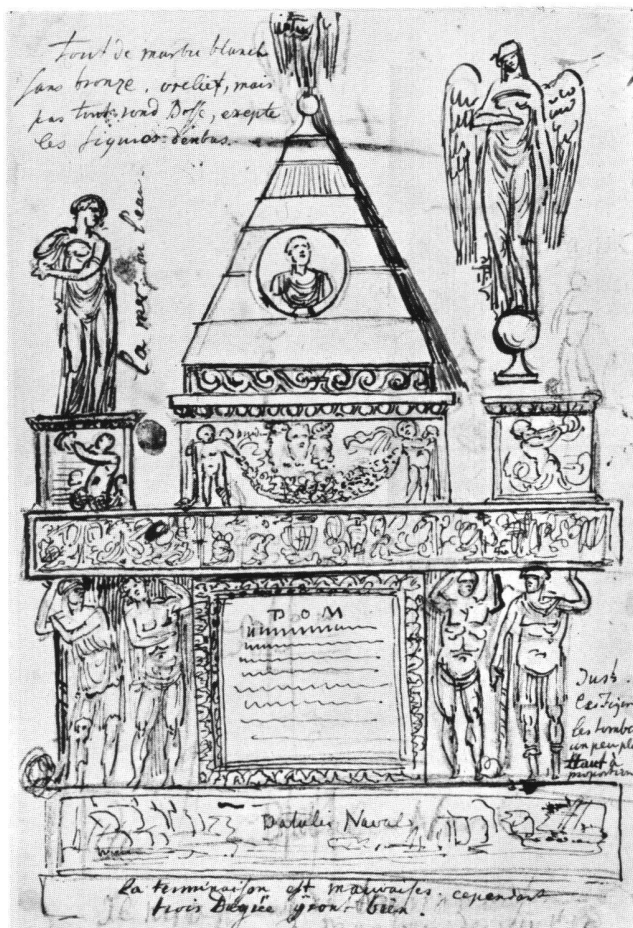 tout de marbre blanch
sans bronze, orelief, mais
pas tout rond Bosse, exepte
les figures d'enbas.
la mer ou l'eau
D O M
les tombe
un peu plu
haut à
proportion
Batailes Navals
la terminaison est mauvaises. cependant
trois Degrée yront bien.